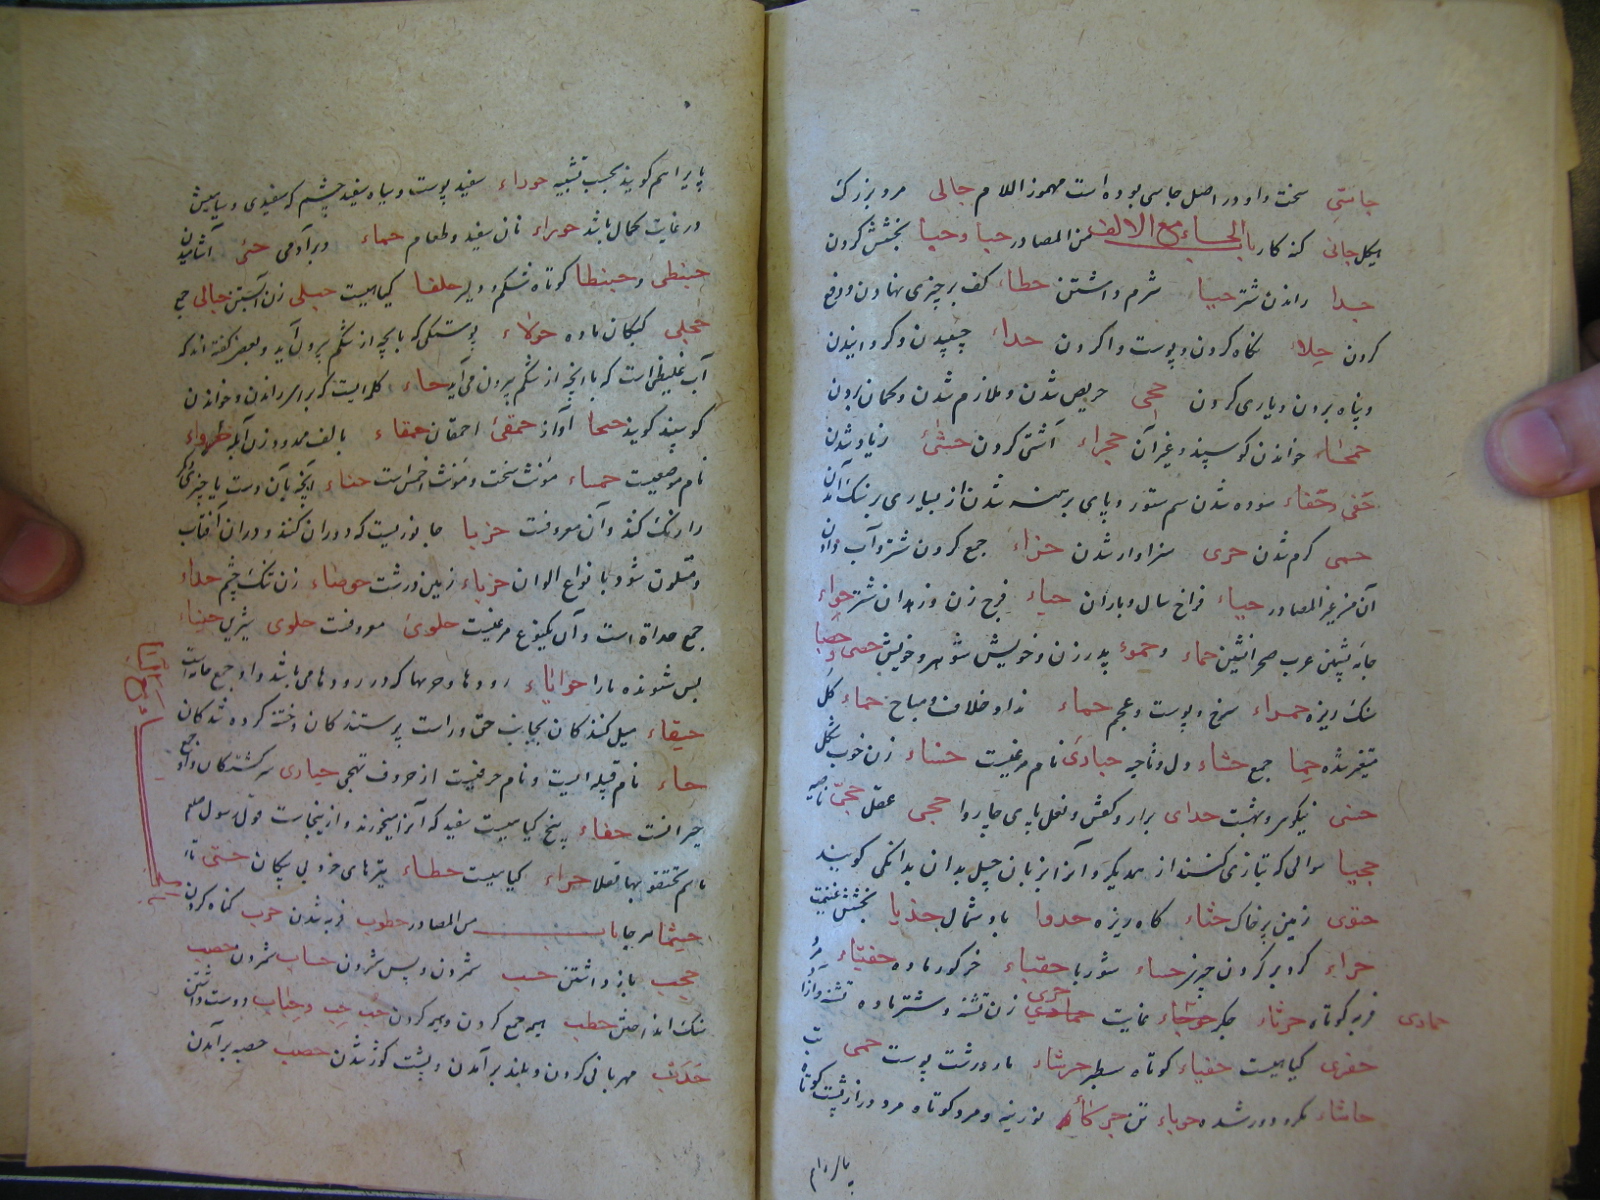 جاسی سخت و او در اصل جاسی بوده است مهموز اللام جالی مرد بزرک
هیکل جانی کنه کار باب الحاء مع الالف من المصادر حبا و حبا بخشش کردن
حدا راندن شتر حیا شرم داشتن حطاء کف بر چیزی نهادن و دفع
کردن حلاء نکاه کردن و پوست واکردن حداء چفپیدن و کردانیدن
و پناه بردن و یاری کردن حجی حریص شدن و ملازم شدن و کمان بردن
خواندن کوسپند و غیر آن حجراء آشتی کردن زیاد شدن
حفی حفاء سوده شدن سم ستور و پای برهنه شدن از بسیاری بر سنک آمدن
حمی کرم شدن حری سزاوار شدن حزاء جمع کردن شتر و آب دادن
آن من غیر المصادر حیاء فراخ سال و باران حیاء فرج زن و زهدان شتر حواء
جامه پشمین عرب صحرانشین حماء و حموء پدر زن و خویش شوهر و خویش حصی و حصبا
سنک ریزه حمراء سرخ و پوست و عجم حماء فدا و خلاف و مباح حماء کل
متغیر شده حما جمع حشاء دل و ناحیه حباری نام مرغیست حسناء زن خوب شکل
حسنی نیکو و بهشت حدای برابر و کفش و نعل پای چاروا حجی عقل حجی ناحیه
حجیا سوالی که بازی کنند از همدیکر و آنرا بزبان چپل بدان بدانکی کویند
حقوی زمین پر خاک حثاء کاه ریزه حدوا باد شمال حذیا بخشش غنیمت
حراء کرد بر کردن چیز حساء شوربا حقباء خر کور ماده حفیاء مرد
فربه کوتاه حرثاء جکر نهایت حری زن تشنه و شتر ماده تشنه
حمادی
حفری کیاهیست حفیاء کوتاه سطبر حرشاء مار درشت پوست حمی تب
حاشاء مکرد و دور شده حرباء تن بوزینه و مرد کوتاه مرد دراز پشت کوتاه
پا را هم
پا را هم کویند بحسب تشبیه حوراء سفید پوست و سیاه و سفید چشم که سفیدی و سیاهیش
در غایت کمال باشد حوراء نان سفید و طعام حماء و برآدمی حتی آشامیدن
حبنطی و حبنطا کوتاه شکم و دلیر حلفا کیاهیست حبلی زن آبستن حبالی جمع
حجلی کبکان ماده حولاء پوستکی که با بچه از شکم بیرون آید و بعضی کفته اند که
آب غلیظی است که با بچه از شکم بیرون می آید حاء کلمه ایست که برای راندن و خواندن
کوسپند کویند حما آواز حمقی احمقان حمقاء بالف ممدوده زن ابله
نام موضعیست حمساء مونث سخت و مونث احمس است حناء آنچه بآن دست یا چیزی
را رنک کنند و آن معروفست حربا جانوریست که دوران کند و دوران آفتاب
و متلون شود با نواع الوان حزباء زمین درشت حوصاء زن تنک چشم حداء
جمع حداة است و آن یکنوع مرغیست حلوی معروفست حلوی شیرین
بس شونده مارا حوایاء رودها و حربها که در رودها می باشد و او جمع حاویه است
حنفاء میل کنندکان بجانب حق و راست پرستندکان و ختنه کرده شدکان
حاء نام قبیله ایست و نام حرفیست از حروف تهجی حیاری سرکشتکان و او جمع
حیرانست حفاء بیخ کیاهیست سفید که آنرا میخورند و ازینجاست قول رسول صلعم
ما لم تحتفئوا بها بقلا حزاء کیاهیست حطاء تیرهای خرد بی پیکان حتی تا
حیثما هر جا باب من المصادر حطوب فربه شدن حوب کناه کردن
حجب باز داشتن حسب شمردن و بس شمردن حساب شمردن حصب
سنک انداختن حطب هیمه جمع کردن و هیمه کردن حب حب و حباب دوست داشتن
حدب مهربانی کردن و بلند برآمدن و پشت کوژ شدن حصب حصبه برآمدن